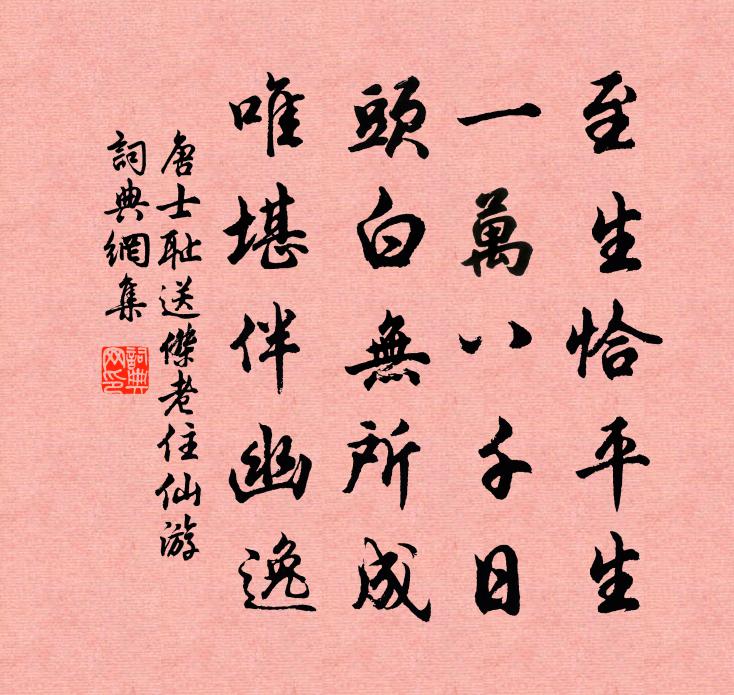 至生恰平生
一萬八千日
頭白無所成
唯堪伴幽逸
唐士耻送傑老住仙游
詞典網集
詞典網印